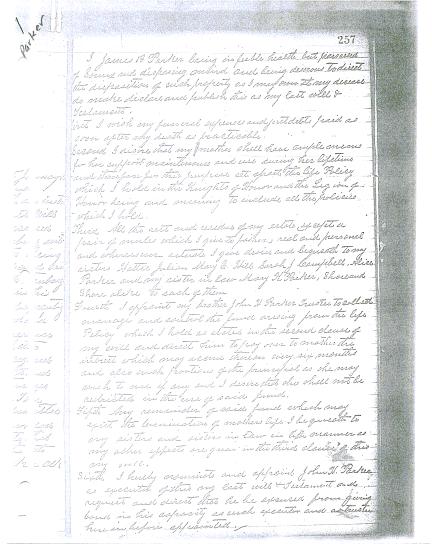 1
Parker
257
I James B Parker being in feeble health but possessed
of sound and disposing mind and being desirous to direct
the disposition of such property as I may own at my decease
do make declare and publish this as my last will &
Testament.
1st I wish my funeral expenses and just debts paid as
soon after my death as practicable
Second I desire that my mother shall have ample means
for her support maintenance and use during her lifetime
and therefore for this purpose set apart the life Policy
which I hold in the Knights of Honor and the Legion of
Honor being and meaning to include all the policies
which I hold.
Third All the rests and residue of my estate except a
pair of mules which I give to father, real and personal
and wheresoever situate I give devise and bequeath to my
sisters Hattie Julian May E Hill Sarah J Campbell, Alice
Parker and my sister in law Mary K Parker, Share and
Share alike to each of them
Fourth I appoint my brother John H Parker Trustee to collect
manage and control the fund arising from the life
Policy which I hold as stated in the second clause of
my will and direct him to pay over to mother the
interest which may accrue thereon every six months
and also such portions of the principal as she may
wish to use if any and I desire that she shall not be
restricted in the use of said fund.
Fifth Any remainder of said fund which may
exist the termination of mothers life I bequeath to
my sisters and sister in law in like manner as
my other effects are given in the third clause of this
my will.
Sixth I hereby nominate and appoint John H. Parker
as executor of this my last will & Testament and
request and direct that he be excused from giving
bond in his capacity as such executor and as trustee
herein before appointed.